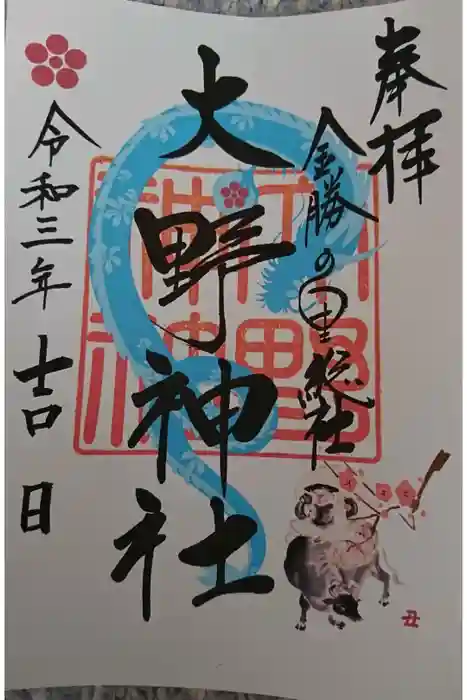 奉拝
金勝の里総社
大野神社
令和三年吉日
丑